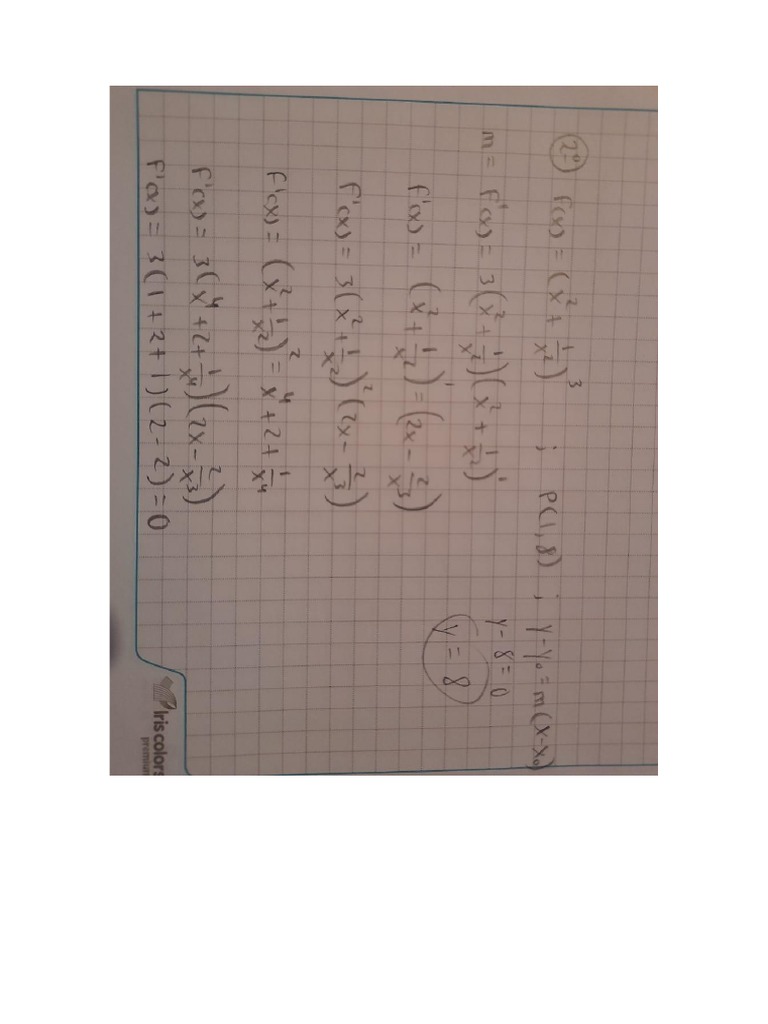 2º) f(x) = (x² + 1/x²)³ ; P(1,8) ; y-y₀ = m(x-x₀)
m = f'(x) = 3(x² + 1/x²)(x² + 1/x²)'
y - 8 = 0
f'(x) = (x² + 1/x²)' = (2x - 2/x³)
y = 8
f'(x) = 3(x² + 1/x²)² (2x - 2/x³)
f'(x) = (x² + 1/x²)² = x⁴ + 2 + 1/x⁴
f'(x) = 3(x⁴ + 2 + 1/x⁴)(2x - 2/x³)
f'(x) = 3(1 + 2 + 1)(2 - 2) = 0
Iris colors
premium